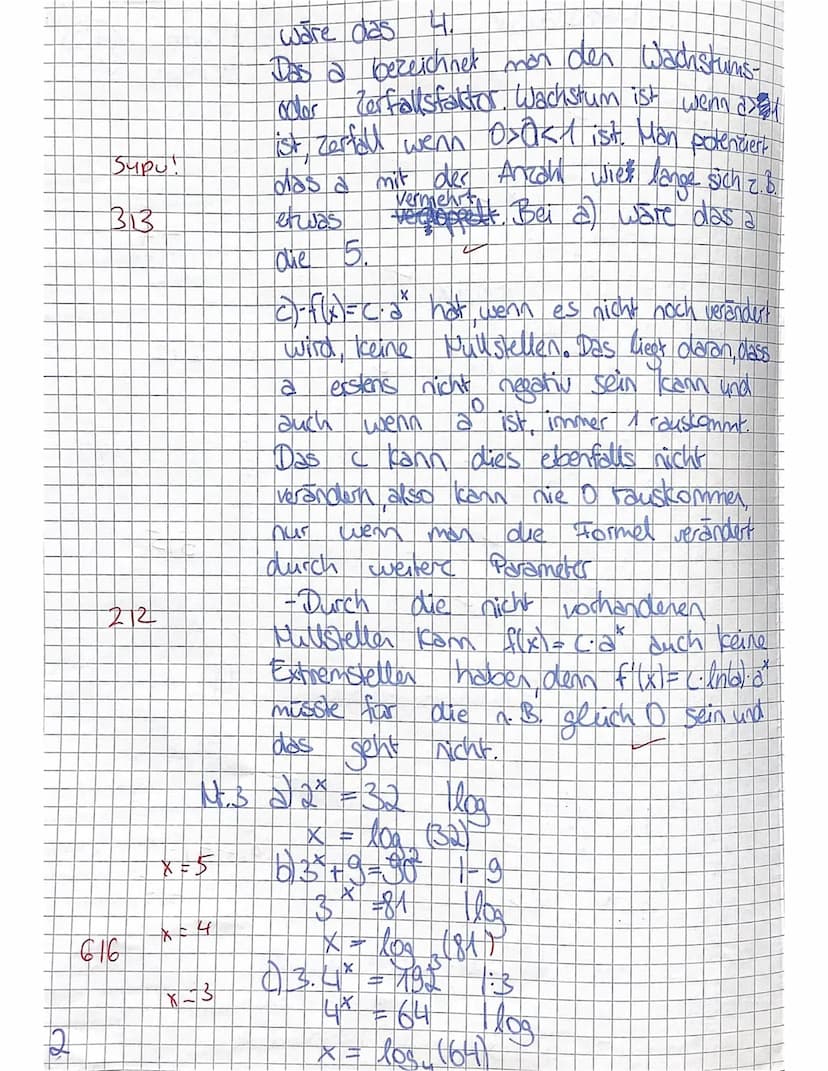 wäre das 4.
Das a bezeichnet man den Wachstums-
oder Zerfallsfaktor. Wachstum ist wenn a>1
ist, Zerfall wenn 0>a<1 ist. Man potenziert
Supu!
das a mit der Anzahl wie lange sich z.B.
313
etwas vermehrt. Bei a) wäre das a
die 5.
c)-f(x)=c·a^x hat, wenn es nicht noch verändert
wird, keine Nullstellen. Das liegt daran, dass
a erstens nicht negativ sein kann und
auch wenn a^0 ist, immer 1 rauskommt.
Das c kann dies ebenfalls nicht
verändern, also kann nie 0 rauskommen,
nur wenn man die Formel verändert
durch weitere Parameter
-Durch die nicht vorhandenen
212
Nullstellen kann f(x)=c·a^x auch keine
Extremstellen haben, denn f'(x)=c·ln(a)·a^x
müsste für die n.B. gleich 0 sein und
das geht nicht.
Nr.3 a) 2^x = 32 |log
x = log_2 (32)
x=5
b) 3^x+9=90 |-9
3^x =81 |log
x=4
x = log_3 (81)
616
c) 3·4^x = 192 |:3
x=3
4^x = 64 |log
2
x = log_4 (64)